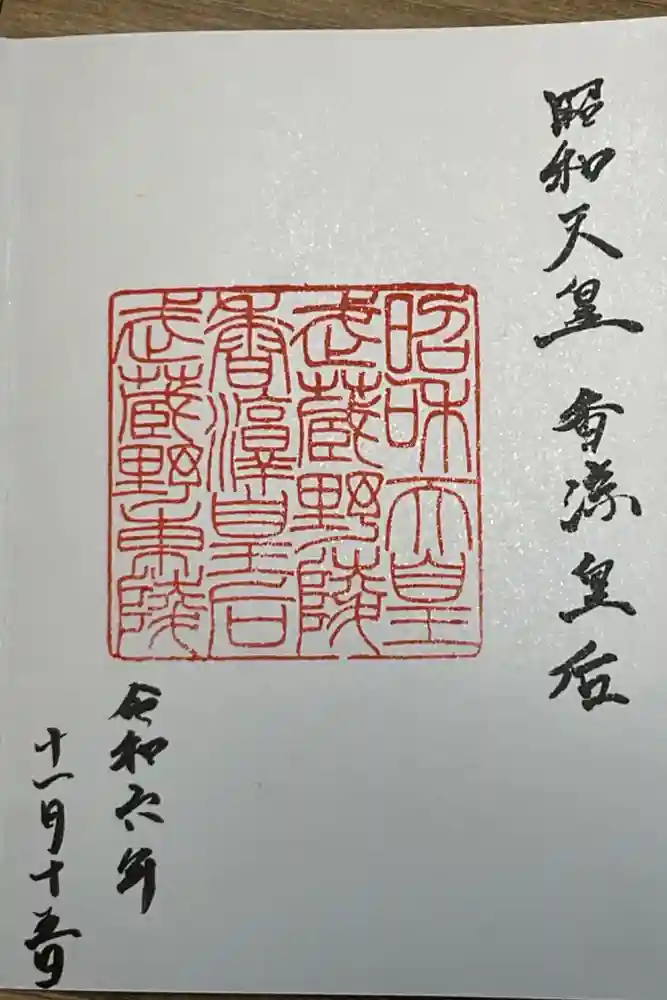 昭和天皇 香淳皇后
昭和天皇
武蔵野陵
香淳皇后
武蔵野東陵
令和六年
十一月十五日